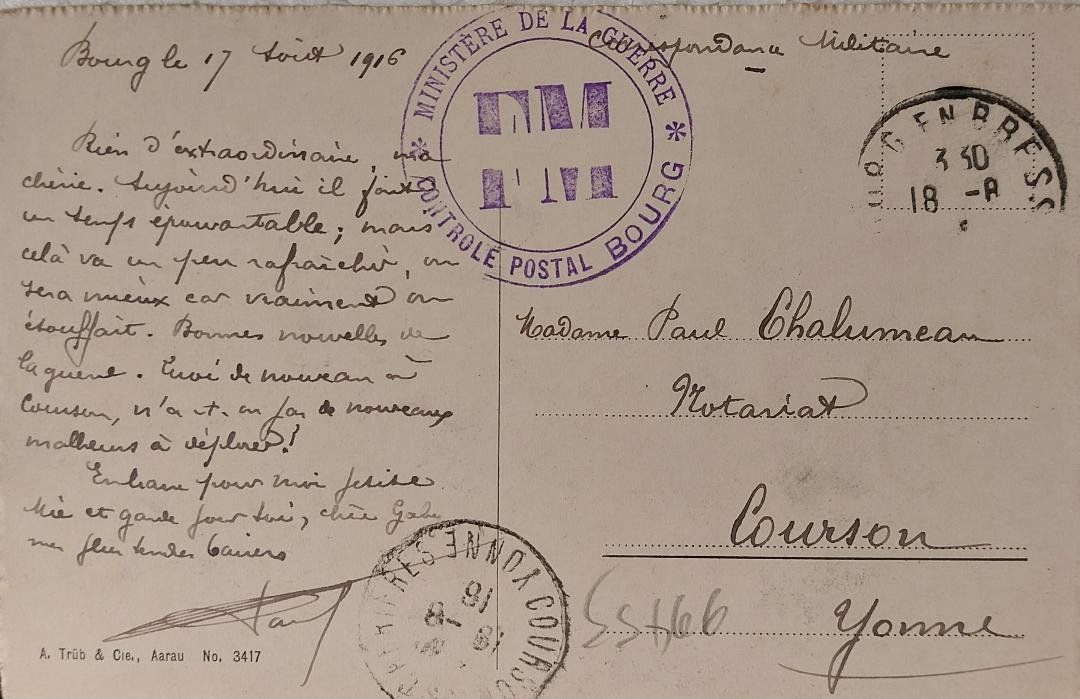 Bourg le 17 Août 1916
Correspondance Militaire
MINISTÈRE DE LA GUERRE
FM
* CONTROLE POSTAL BOURG *
BOURG EN BRESSE
3 30
18 -8
Rien d'extraordinaire, ma
chérie. Aujourd'hui il fait
un temps épouvantable; mais
celà va un peu rafraîchir, on
sera mieux car vraiment on
étouffait. Bonnes nouvelles de
la guerre. Quoi de nouveau à
Courson, n'a-t-on pas de nouveaux
malheurs à déplorer!
Embrasse pour moi petite
Mie et garde pour toi, chère Gaby
mes plus tendres baisers
Paul
Madame Paul Chalumeau
Notariat
Courson
Yonne
COURSON LES CARRIERES YONNE
18
8
A. Trüb & Cie., Aarau No. 3417